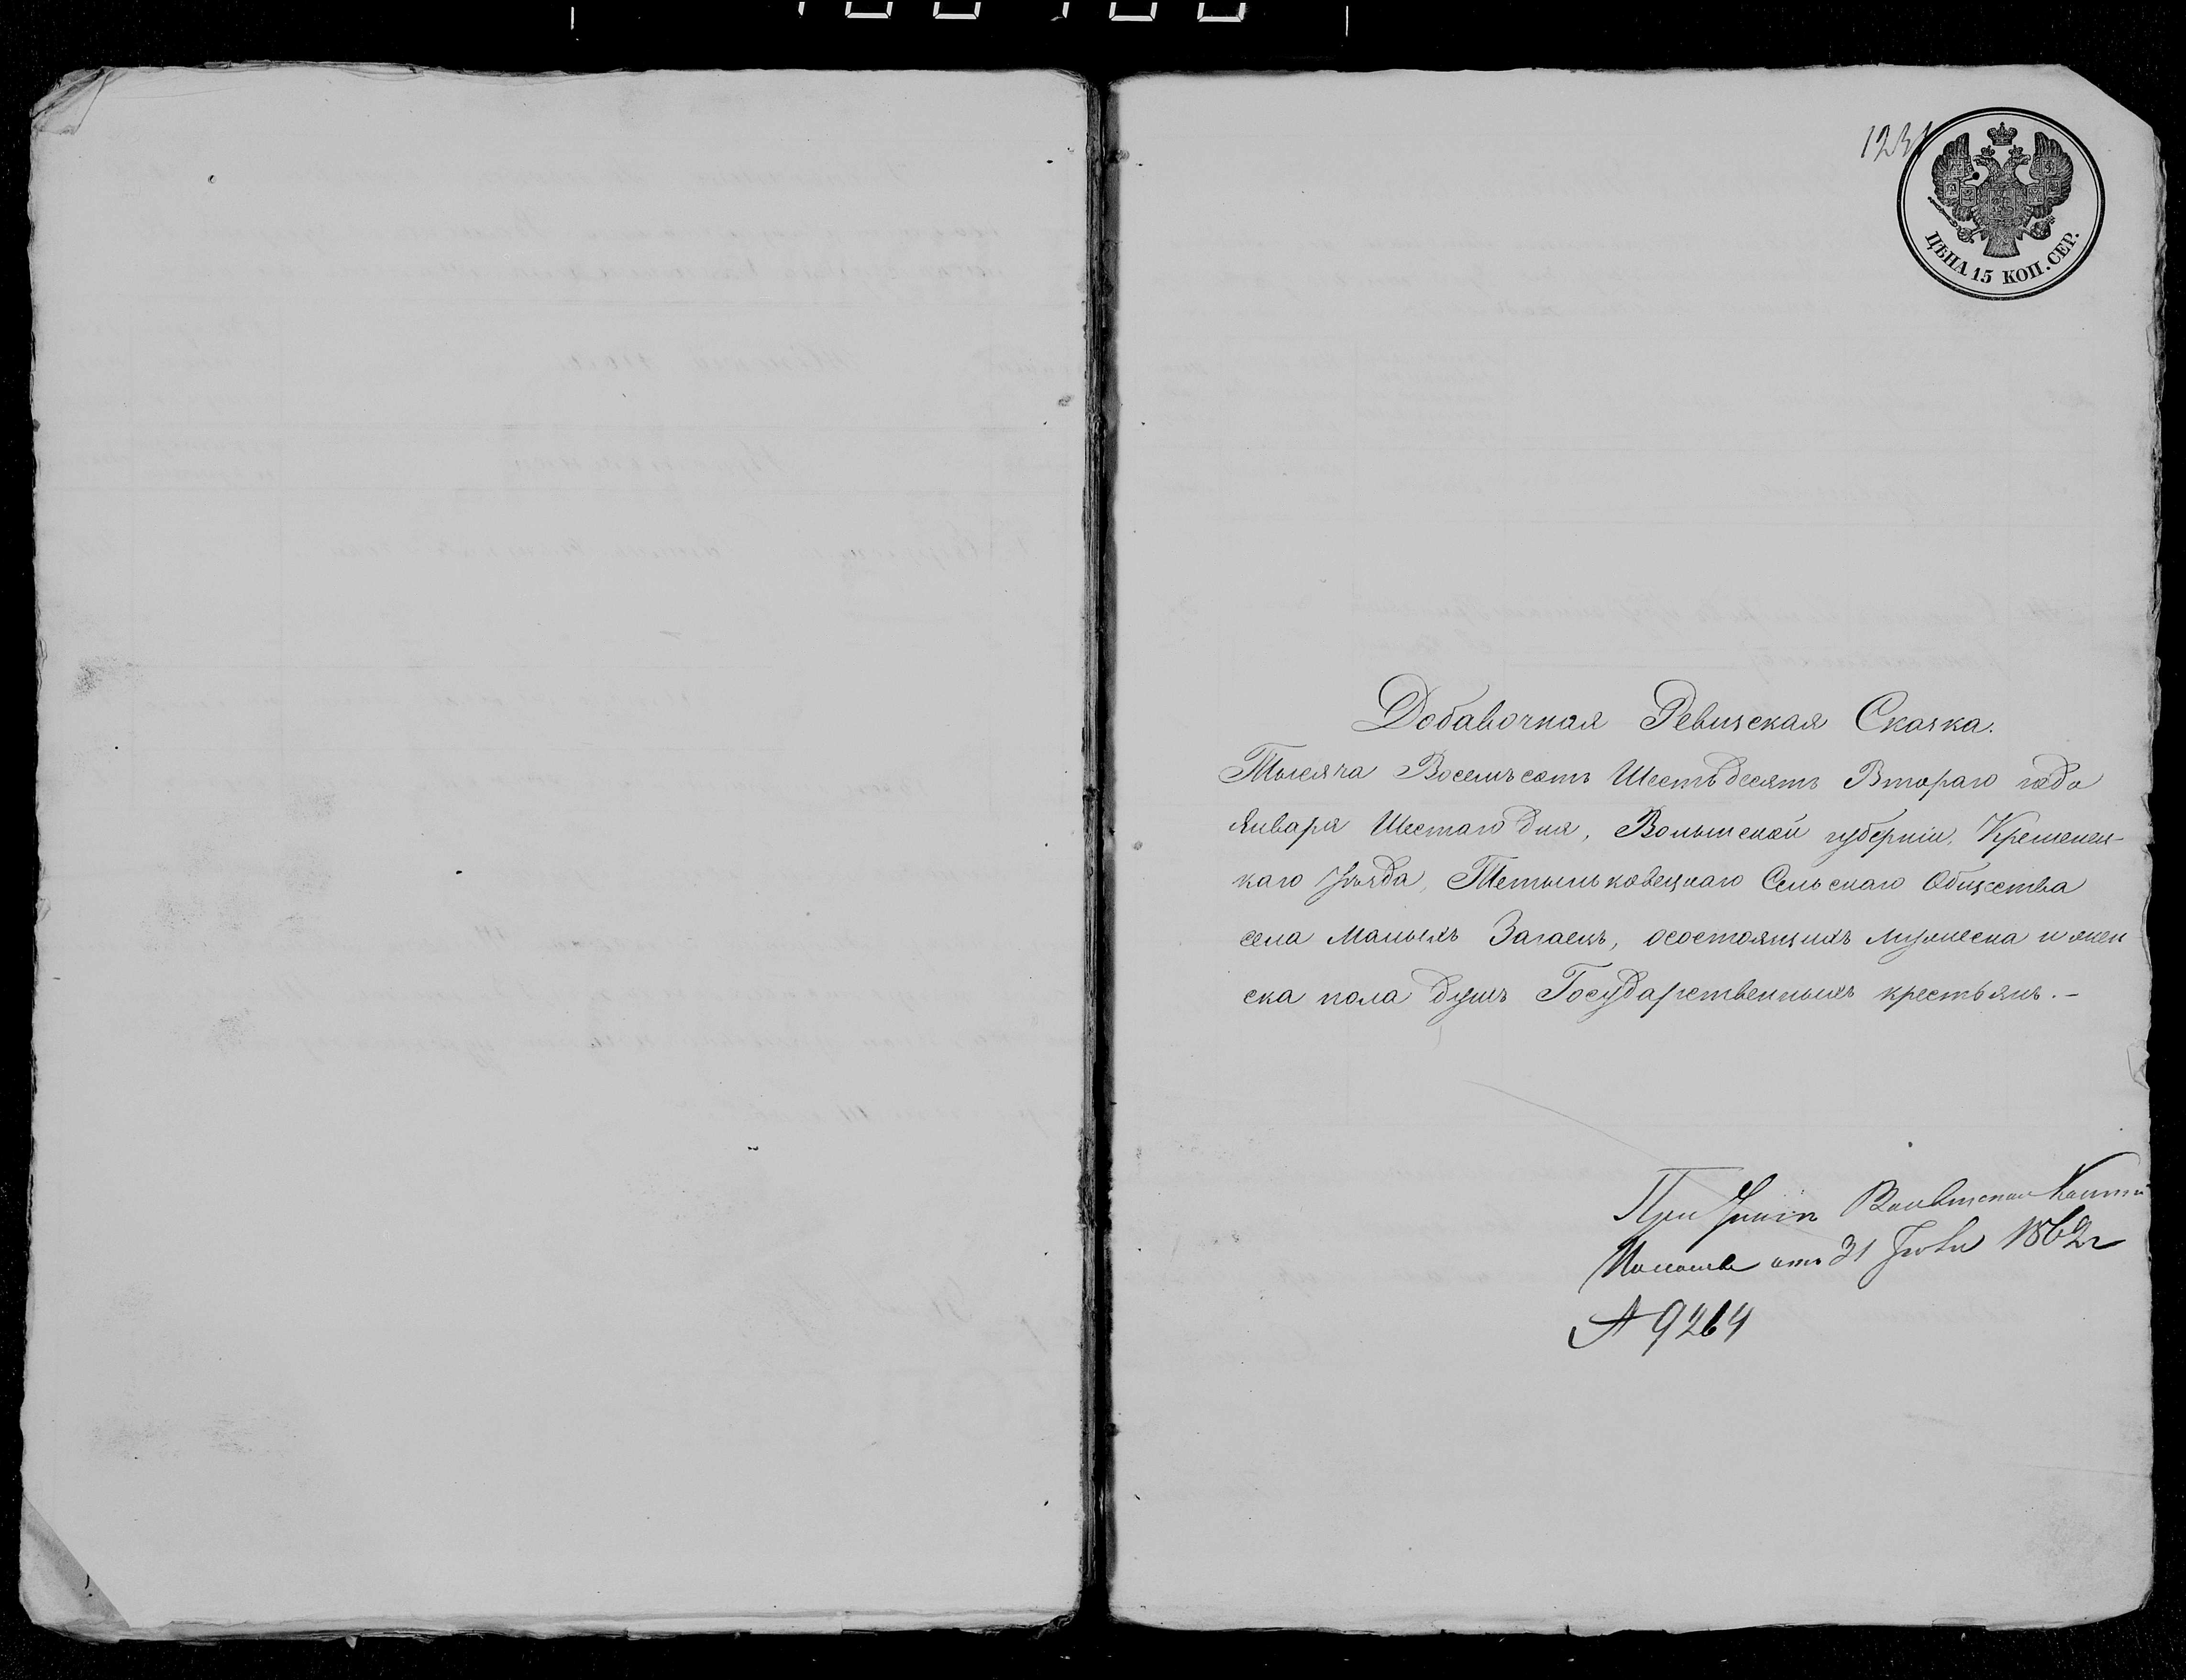 1231
ЦѢНА 15 КОП. СЕР.
Добавочная Ревизская Сказка.
Тысяча Восемъсотъ Шестьдесятъ Втораго года
Января Шестаго дня, Волынской губерніи, Кременец-
каго Уѣзда, Тетыльковецкаго Сельскаго Общества
села Малыхъ Загаецъ, осостоящихъ мужеска и жен
ска пола душъ Государственныхъ крестьянъ.-
При
отъ 31 1862 г
№ 9264